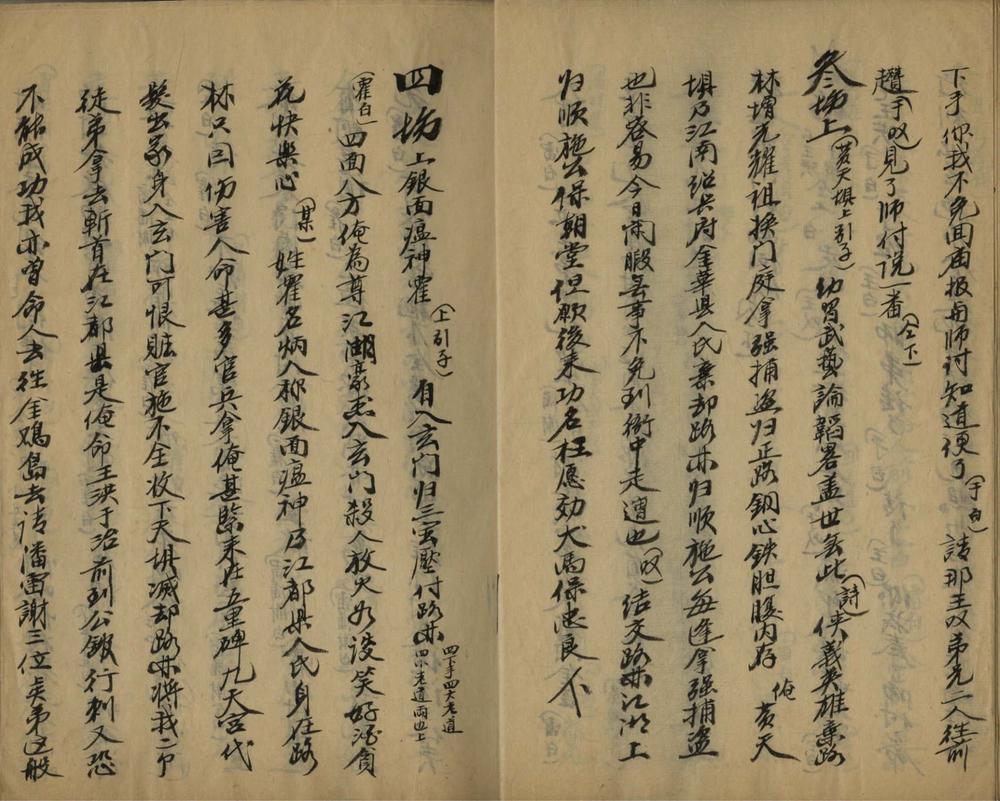 下手你我不免回庙报与师付知道便了(于白)請那王以弟兄二人往前
趱(手叹)見了师付说一番(仝下)
叁场上(黄天垻上引子)幼習武藝論韜畧盖世無比(詩)俠義英雄棄路
林增光耀祖换门庭拿强捕盗归正路鋼心鉄胆腹内存 俺黄天
垻乃江南绍兴府金華县人氏棄却路林归顺施公每逢拿强捕盗
也非容易今日闲暇無事不免到衙中走遭也(叹)结交路林江湖上
归顺施公保朝堂但願後来功名旺愿効犬馬保忠良 下
四场上銀面瘟神霍(上引子)自入玄门归三宝壓付路林 四下手四大老道四小老道两边上
(霍白)四面八方俺為尊江湖豪杰入玄门殺人放火如谈笑好酒貪
花快樂心(某)姓霍名炳人称銀面瘟神乃江都县人氏身在路
林只因伤害人命甚多官兵拿俺甚緊来在五里碑九天宫代
髮出家身入玄门可恨賍官施不全收下天垻减却路林将我二个
徒弟拿去斬首在江都县是俺命王洪于治前到公館行刺又恐
不能成功我亦曾命人去往金鸡岛去请潘雷謝三位賢弟这般